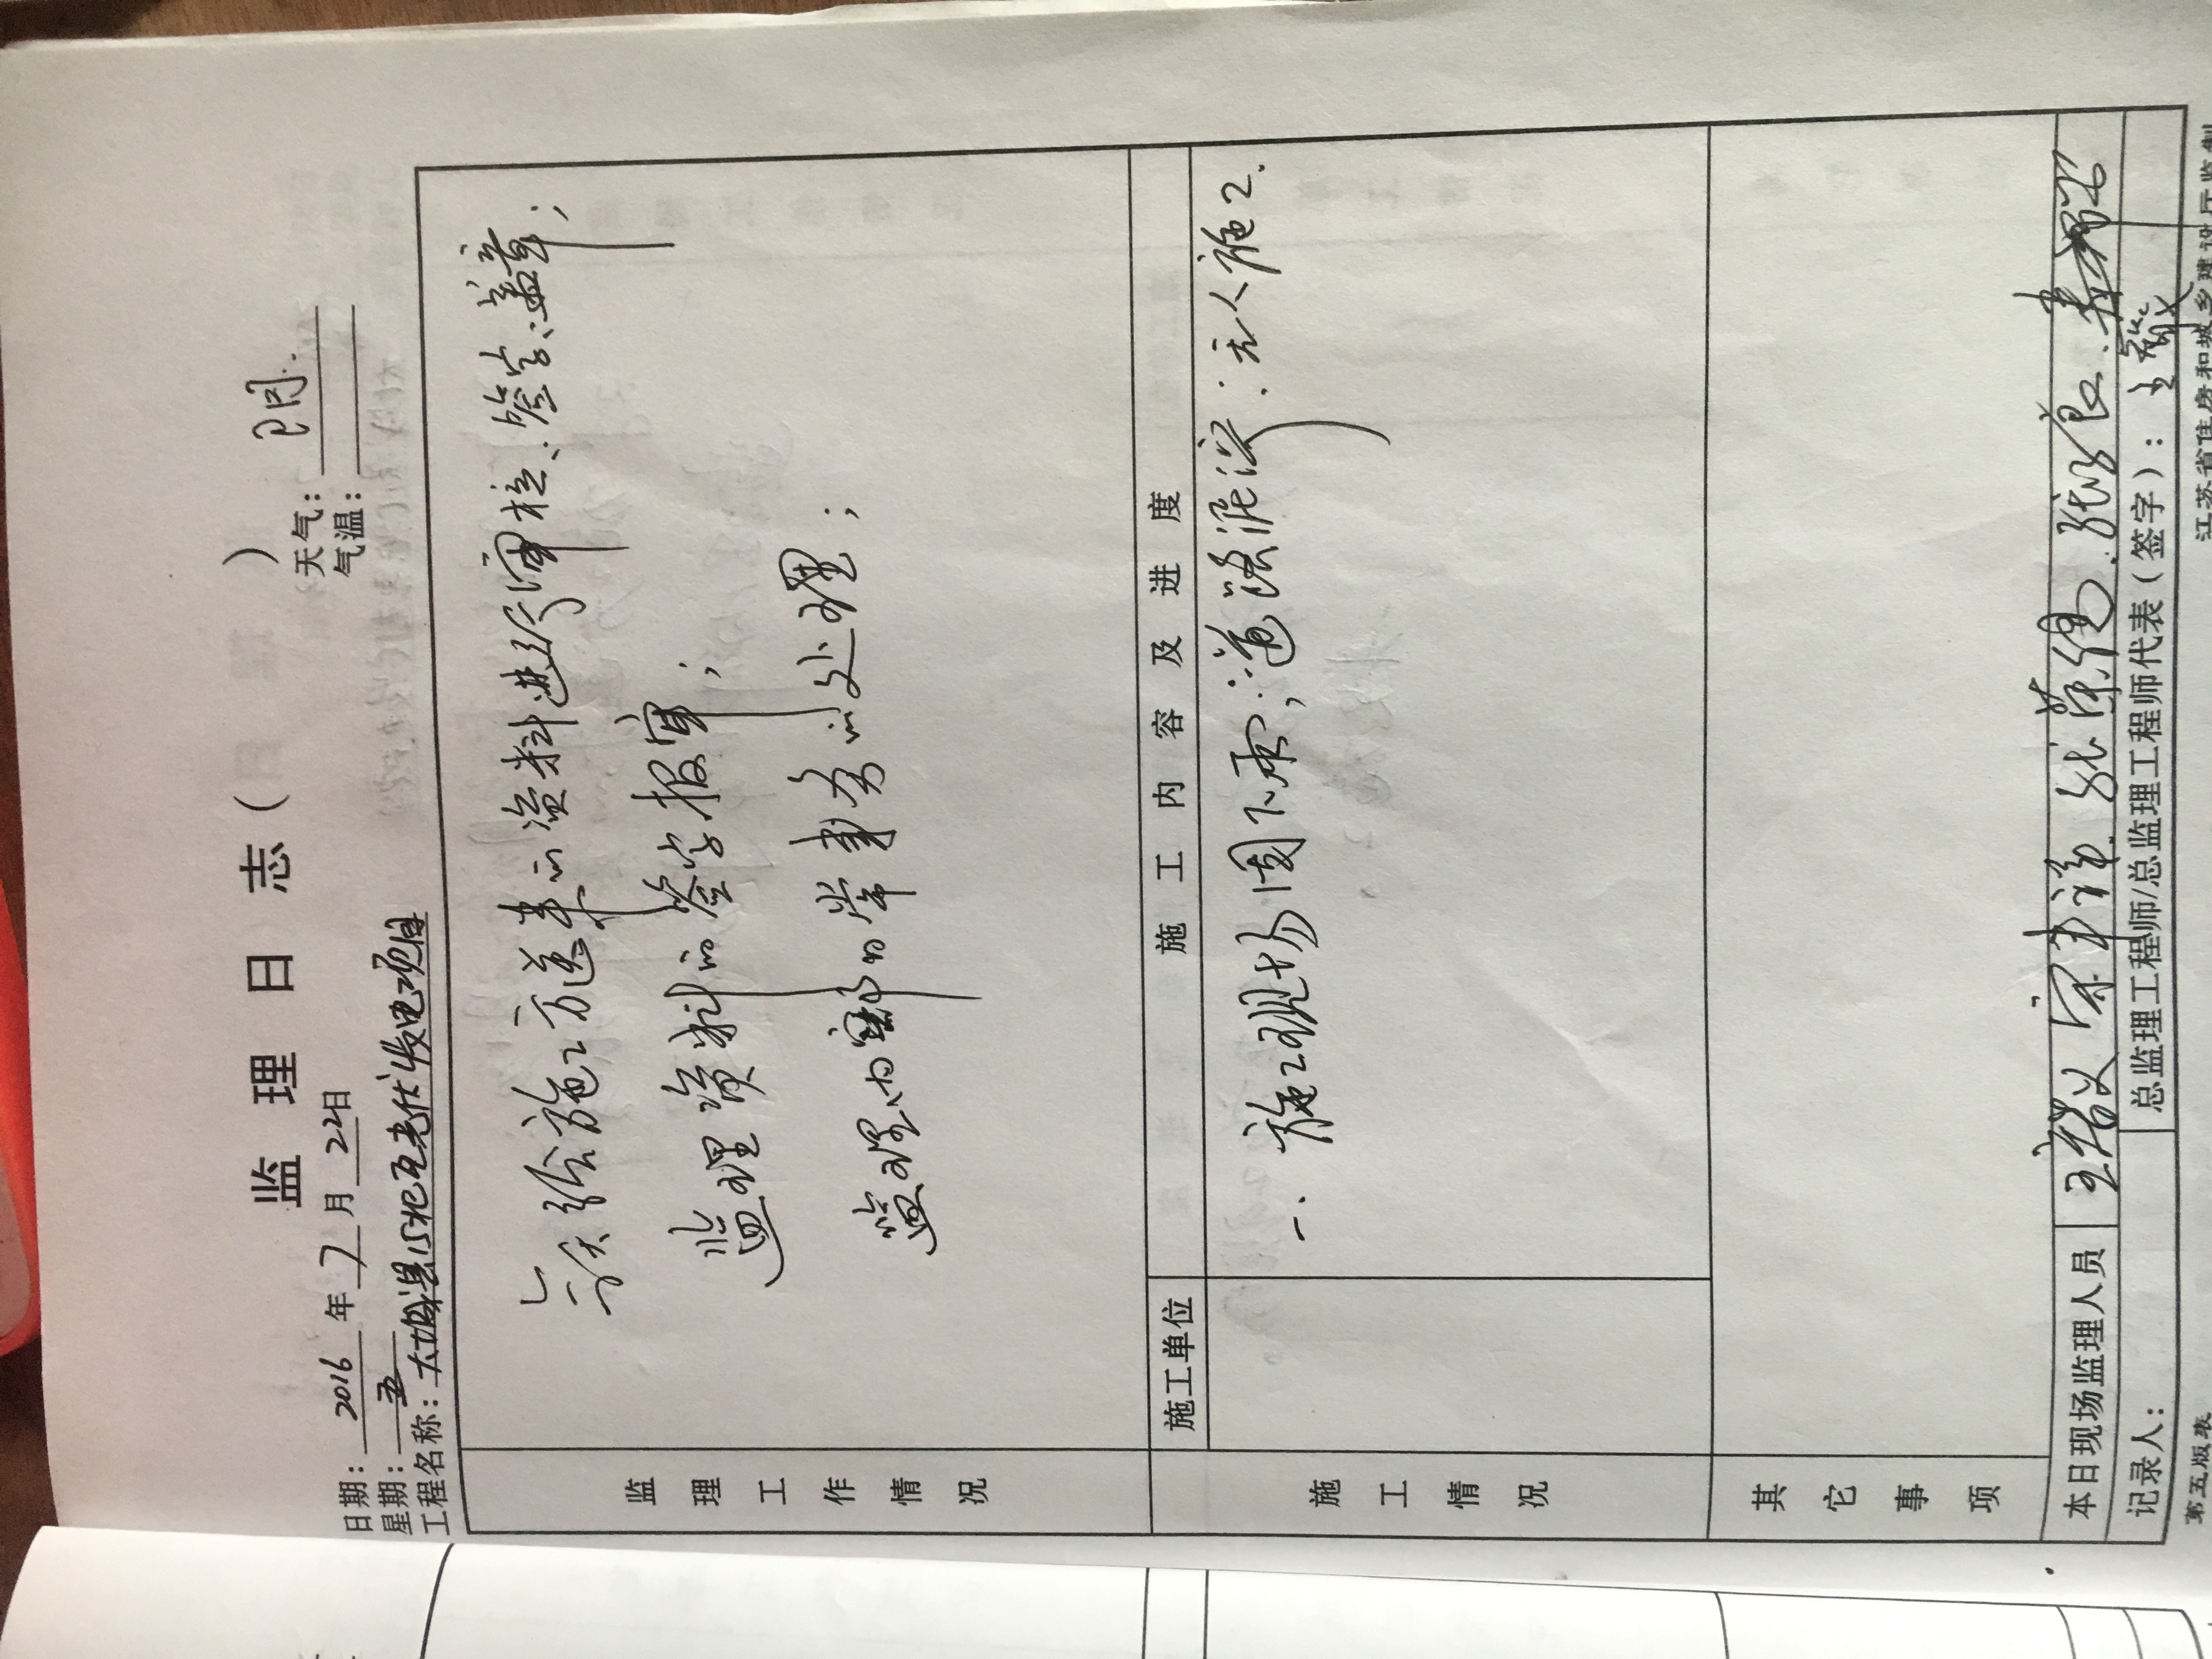 监理日志（ ）
日期：2016年7月22日 天气：阴.
星期：五 气温：
工程名称：大城县15兆瓦光伏发电项目
监理工作情况
今天给施工方送来的资料进行审核、签字、盖章；
监理资料的签字报审；
监理内部的常事务的处理；
施工单位 施工内容及进度
施工情况
一、施工现场因下雨，道路泥泞：无人施工.
其它事项
本日现场监理人员
记录人： 总监理工程师/总监理工程师代表（签字）：
第五版表 江苏省住房和城乡建设厅监制